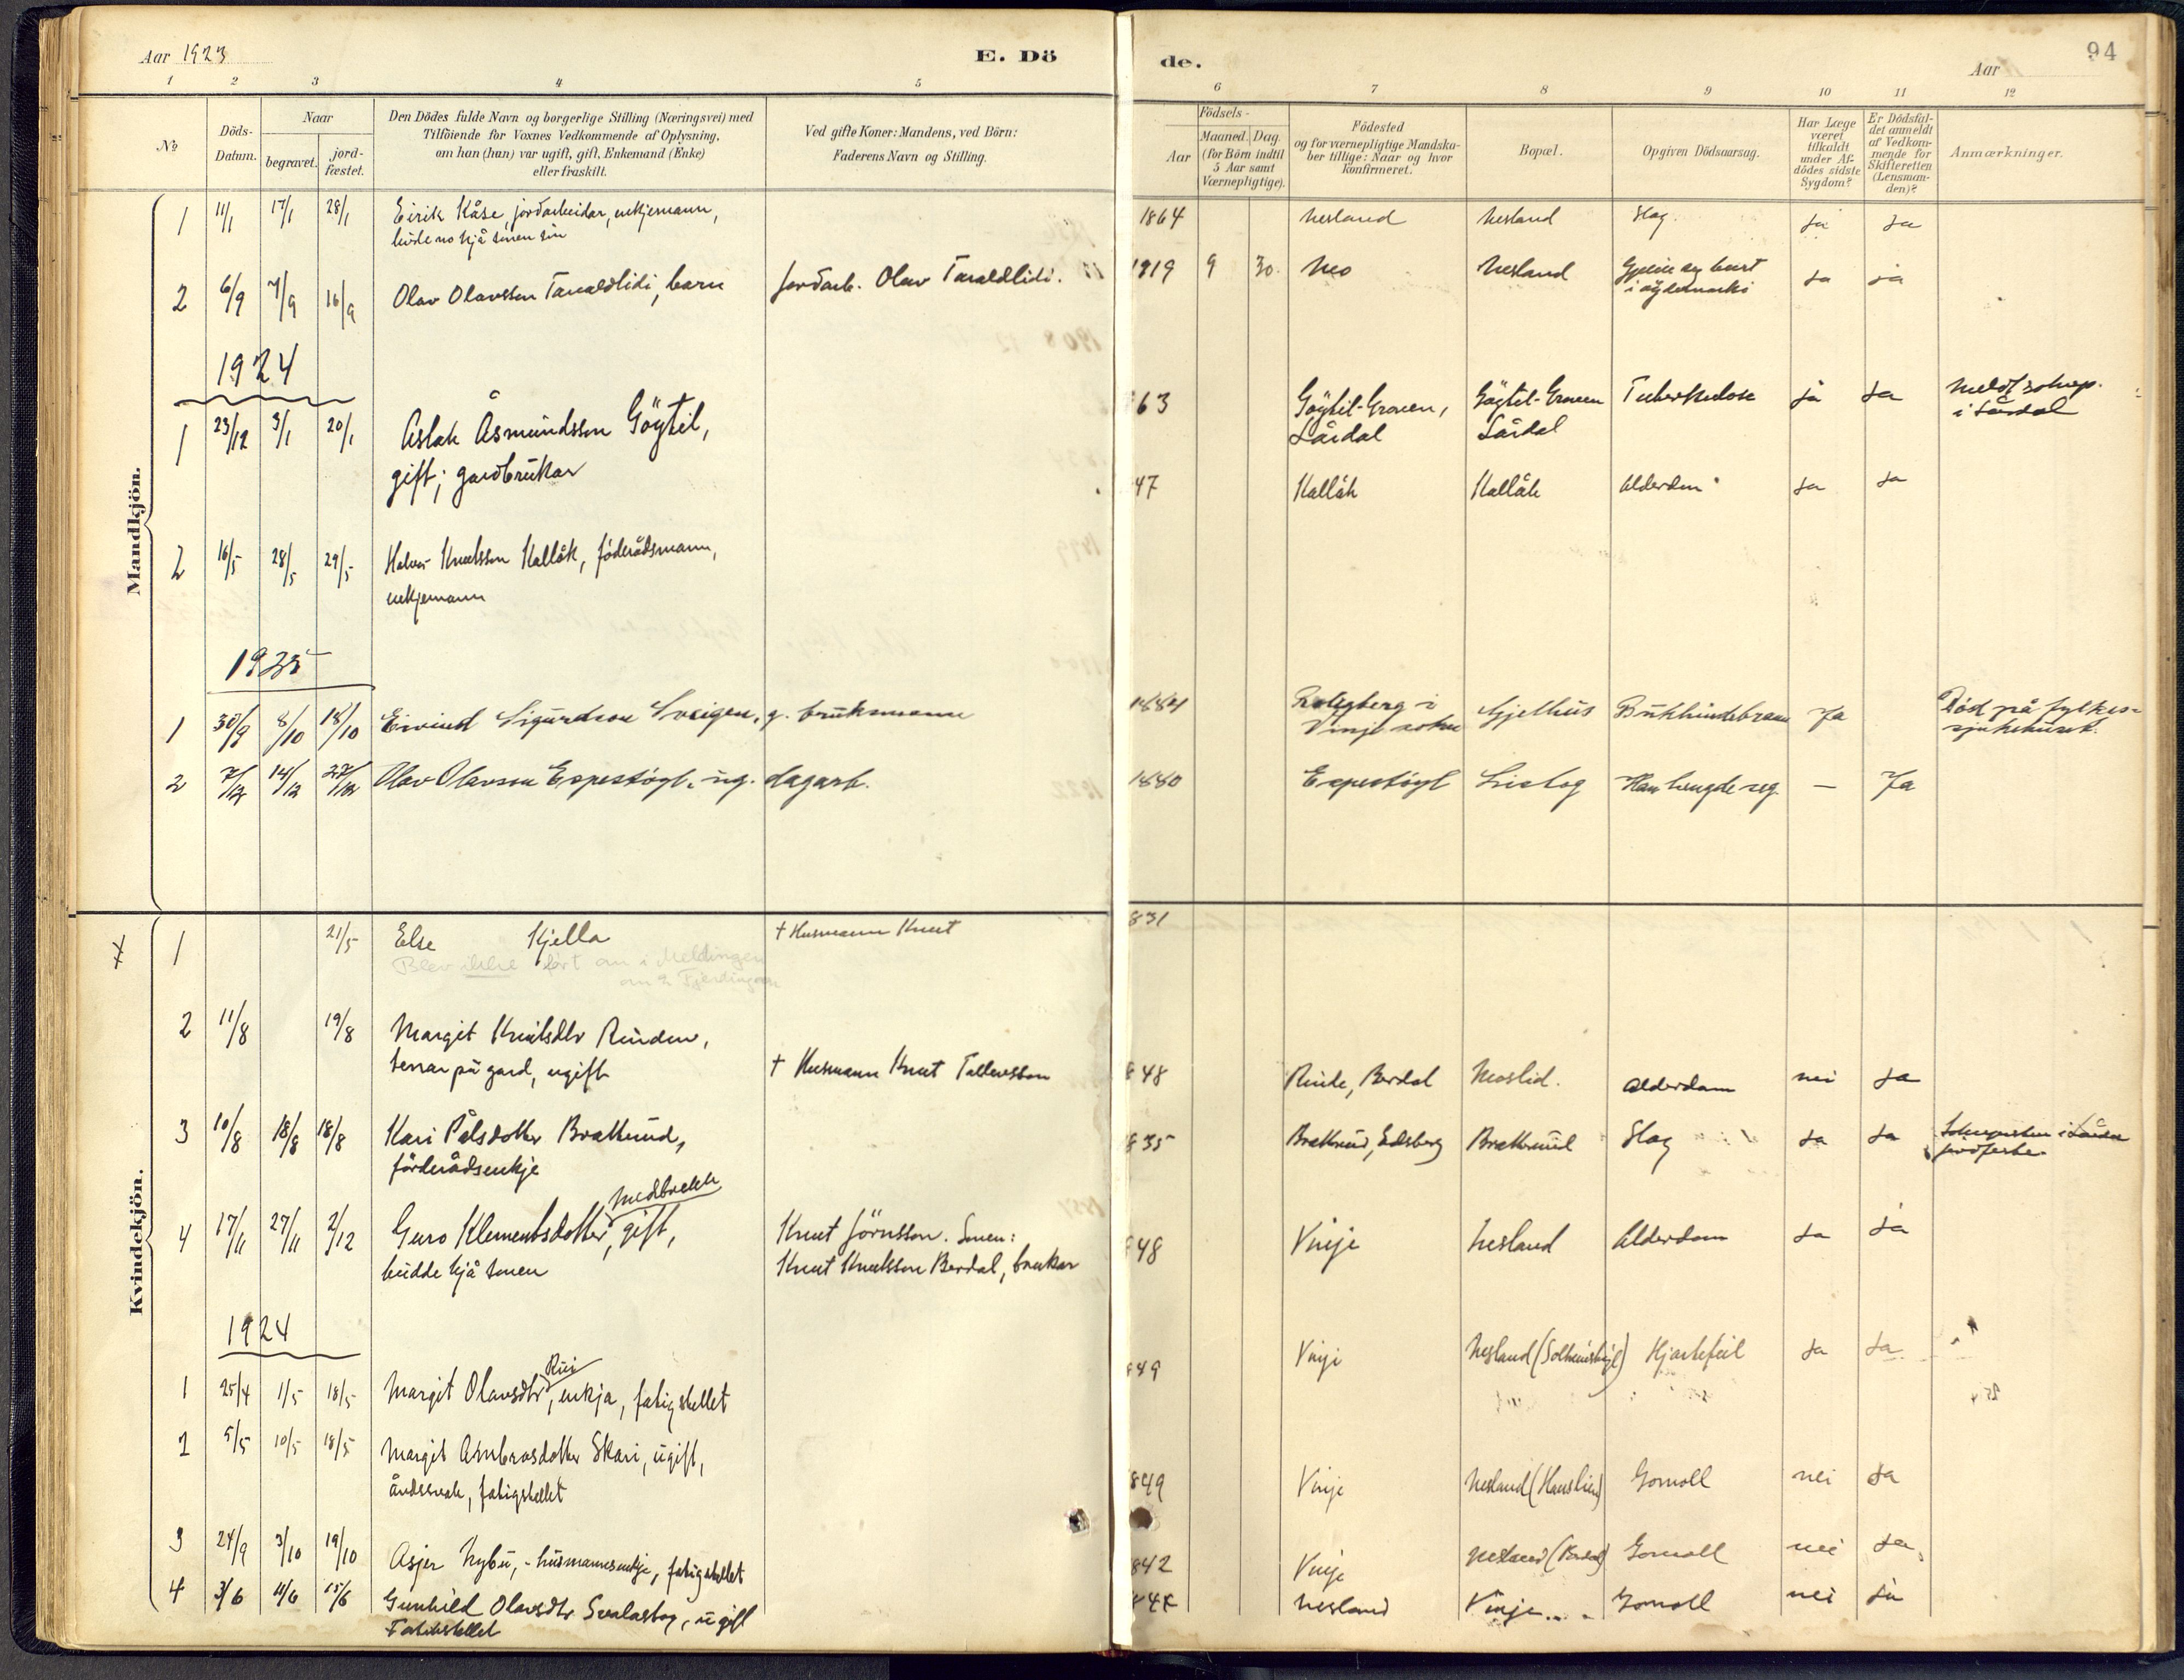 Aar 1923
E. Dö
de.
Aar
94
1 2 3 4 5 6 7 8 9 10 11 12
No
Döds-
Datum.
Naar
begravet.
jord-
fæstet.
Den Dödes fulde Navn og borgerlige Stilling (Næringsvei) med
Tilföiende for Voxnes Vedkommende af Oplysning,
om han (hun) var ugift, gift, Enkemand (Enke)
eller fraskilt.
Ved gifte Koner: Mandens, ved Börn:
Faderens Navn og Stilling.
Födsels-
Aar
Maaned. Dag.
(for Börn indtil
5 Aar samt
Værnepligtige).
Födested
og for værnepligtige Mandska-
ber tillige: Naar og hvor
konfirmeret.
Bopæl.
Opgiven Dödsaarsag.
Har Læge
været
tilkaldt
under Af-
dödes sidste
Sygdom?
Er Dödsfal-
det anmeldt
af Vedkom-
mende for
Skifteretten
(Lensman-
den)?
Anmærkninger.
Mandkjön.
1 11/1 17/1 28/1 Eirik Kåse, jordarbeidar, enkjemann, 1864 Nesland Nesland Slag. Ja Ja
hjå sonen sin
2 6/9 7/9 16/9 Olav Olavsson Taraldlidi, barn Jordarb. Olav Taraldlidi. 1919 9 30. Mo Nesland Ja ja
1924
1 23/12 3/1 20/1 Aslak Åsmundsson Göytil, 63 Göytil-Groven, Göytil-Groven Tuberkulose Ja Ja
gift; gardbrukar Lårdal Lårdal i Lårdal
2 16/5 28/5 29/5 Halvor Knutsson Kallåk, föderådsmann, 47 Kallåk Kallåk Alderdom Ja Ja
enkjemann
1925
1 30/9 8/10 18/10 Eivind Sigurdson Sveigen, g. bruksmann 1884 Vinje sokn Gjelhus Bukhindebrann Ja Död på fylkes-
sjukehuset.
2 7/12 14/12 27/12 Olav Olavson Espestöyl, ug. dagarb. 1880 Espestöyl Listog Han hengde seg — Ja
Kvindekjön.
1 21/5 Else Kjella † Husmann Knut 831
Blev ikke fört an i Meldingen
2 11/8 19/8 Margit Knutsdtr Rinden, † Husmann Knut Tallevsson 848 Rinde, Berdal Moslid. Alderdom nei Ja
tenar på gard, ugift
3 10/8 18/8 18/8 Kari Pålsdotter Brattrud, 835 Brattrud, Edsberg Brattrud Slag Ja Ja
förderådsenkje
4 17/11 27/11 2/12 Guro Klementsdotter Medbrekk, gift, Knut Jörnsson. Sonen: 848 Vinje Nesland Alderdom Ja Ja
budde hjå sonen Knut Knutsson Berdal, brukar
1924
1 25/4 1/5 18/5 Margit Olavsdtr Rui, enkja, fatigstellet 849 Vinje Nesland Hjartefeil Ja Ja
2 5/5 10/5 18/5 Margit Ambrosdotter Skari, ugift, 849 Vinje Nesland Gomoll nei Ja
åndssvak, fatigstellet
3 24/9 3/10 19/10 Asjer Nybu, - husmannsenkje, fatigstellet 842 Vinje Nesland (Berdal) Gomoll nei Ja
4 3/6 11/6 15/6 Gunhild Olavsdtr Svalastog, ugift Nesland Vinje Gomoll nei Ja
Fatikstellet